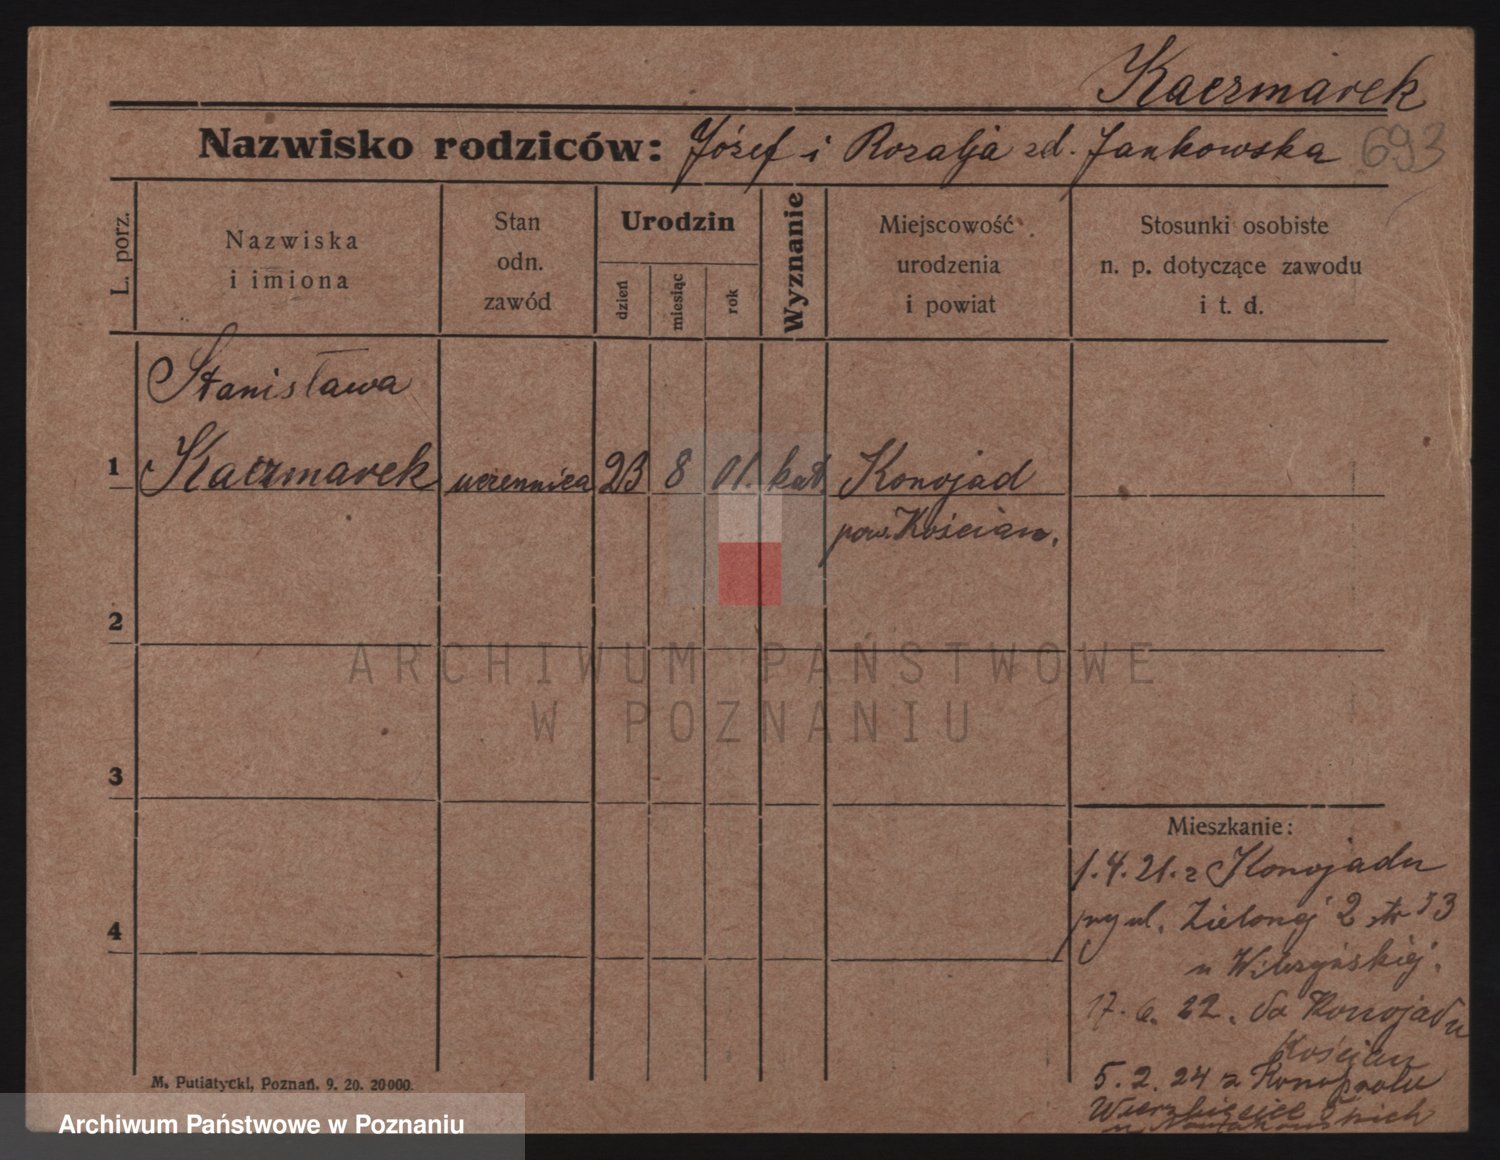 Kaczmarek
Nazwisko rodziców: Józef i Rozalja zd. Jankowska 693
L. porz.
Nazwiska
i imiona
Stan
odn.
zawód
Urodzin
dzień
miesiąc
rok
Wyznanie
Miejscowość
urodzenia
i powiat
Stosunki osobiste
n. p. dotyczące zawodu
i t. d.
Stanisława
1 Kaczmarek uczennica 23 8 01. kat. Konojad
pow. Kościan.
2
ARCHIWUM PAŃSTWOWE
W POZNANIU
3
4
Mieszkanie:
1.4.21. z Konojadu
przy ul. Zielonej 2 ptr
u Wilczyńskiej.
17. 6. 22. do Konojadu
Kościan
5. 2. 24 z
Wierzbięcice
M. Putiatycki, Poznań. 9. 20. 20000.
Archiwum Państwowe w Poznaniu